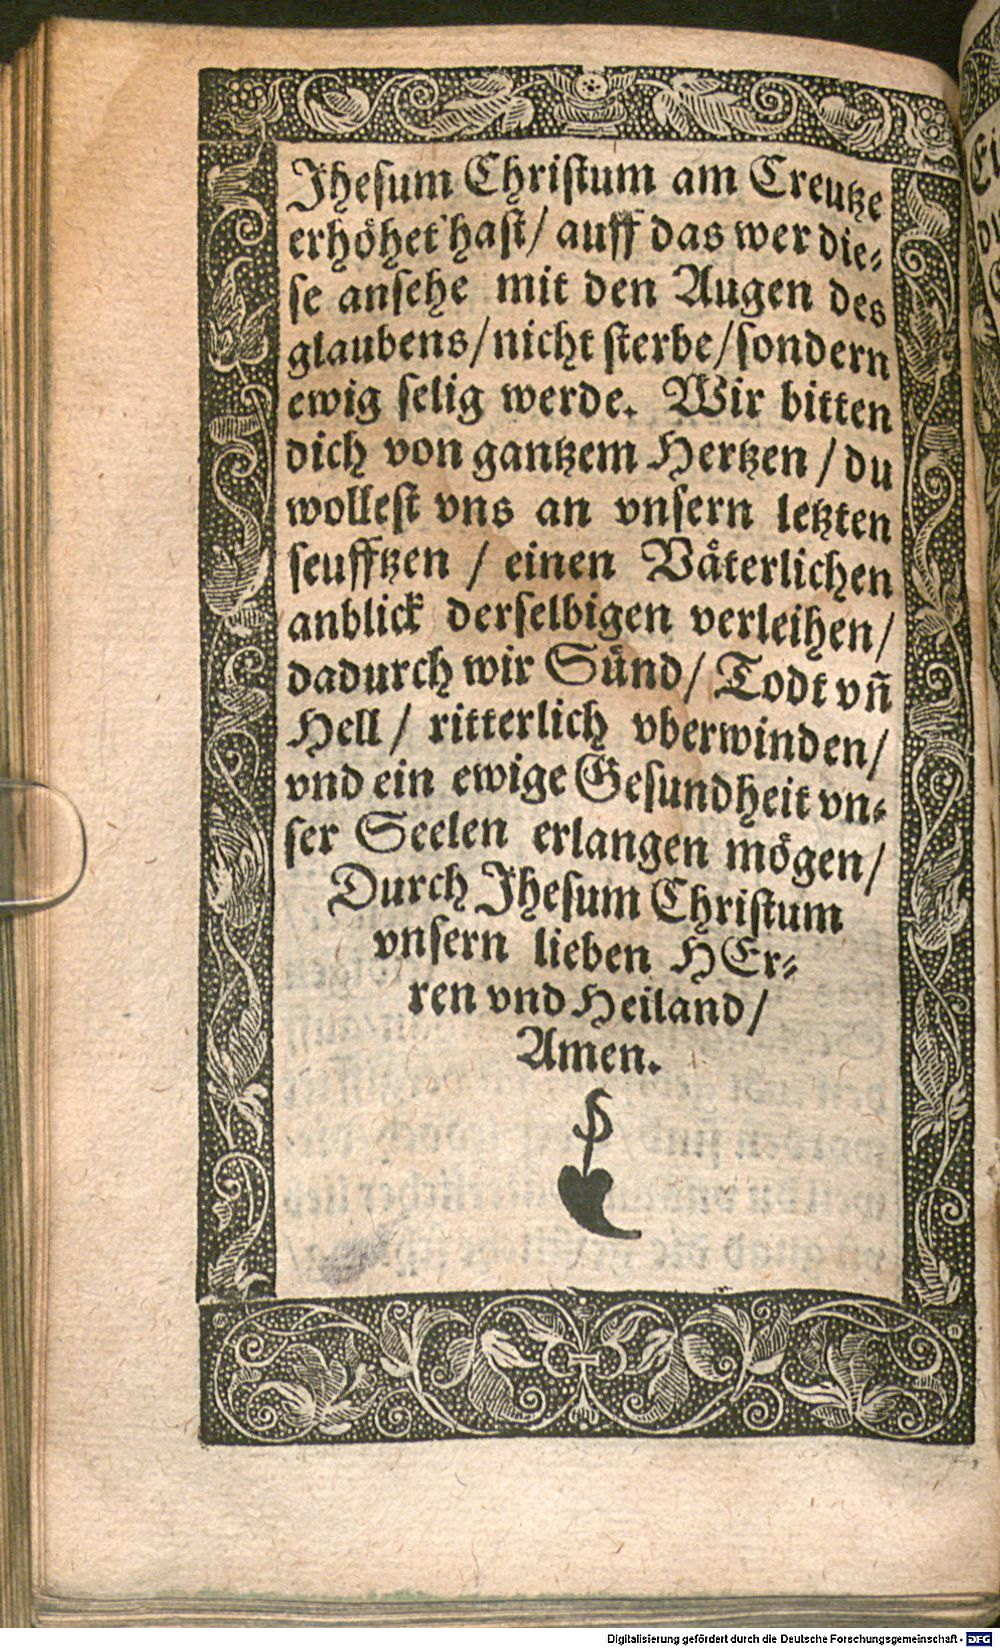 Jhesum Christum am Creutze
erhöhet hast/ auff das wer die-
se ansehe mit den Augen des
glaubens/nicht sterbe/sondern
ewig selig werde. Wir bitten
dich von gantzem Hertzen / du
wollest vns an vnsern letzten
seufftzen / einen Väterlichen
anblick derselbigen verleihen/
dadurch wir Sünd/ Todt vñ
Hell/ ritterlich vberwinden/
vnd ein ewige Gesundheit vn-
ser Seelen erlangen mögen/
Durch Jhesum Christum
vnsern lieben HEr-
ren vnd Heiland/
Amen.
Digitalisierung gefördert durch die Deutsche Forschungsgemeinschaft - DFG